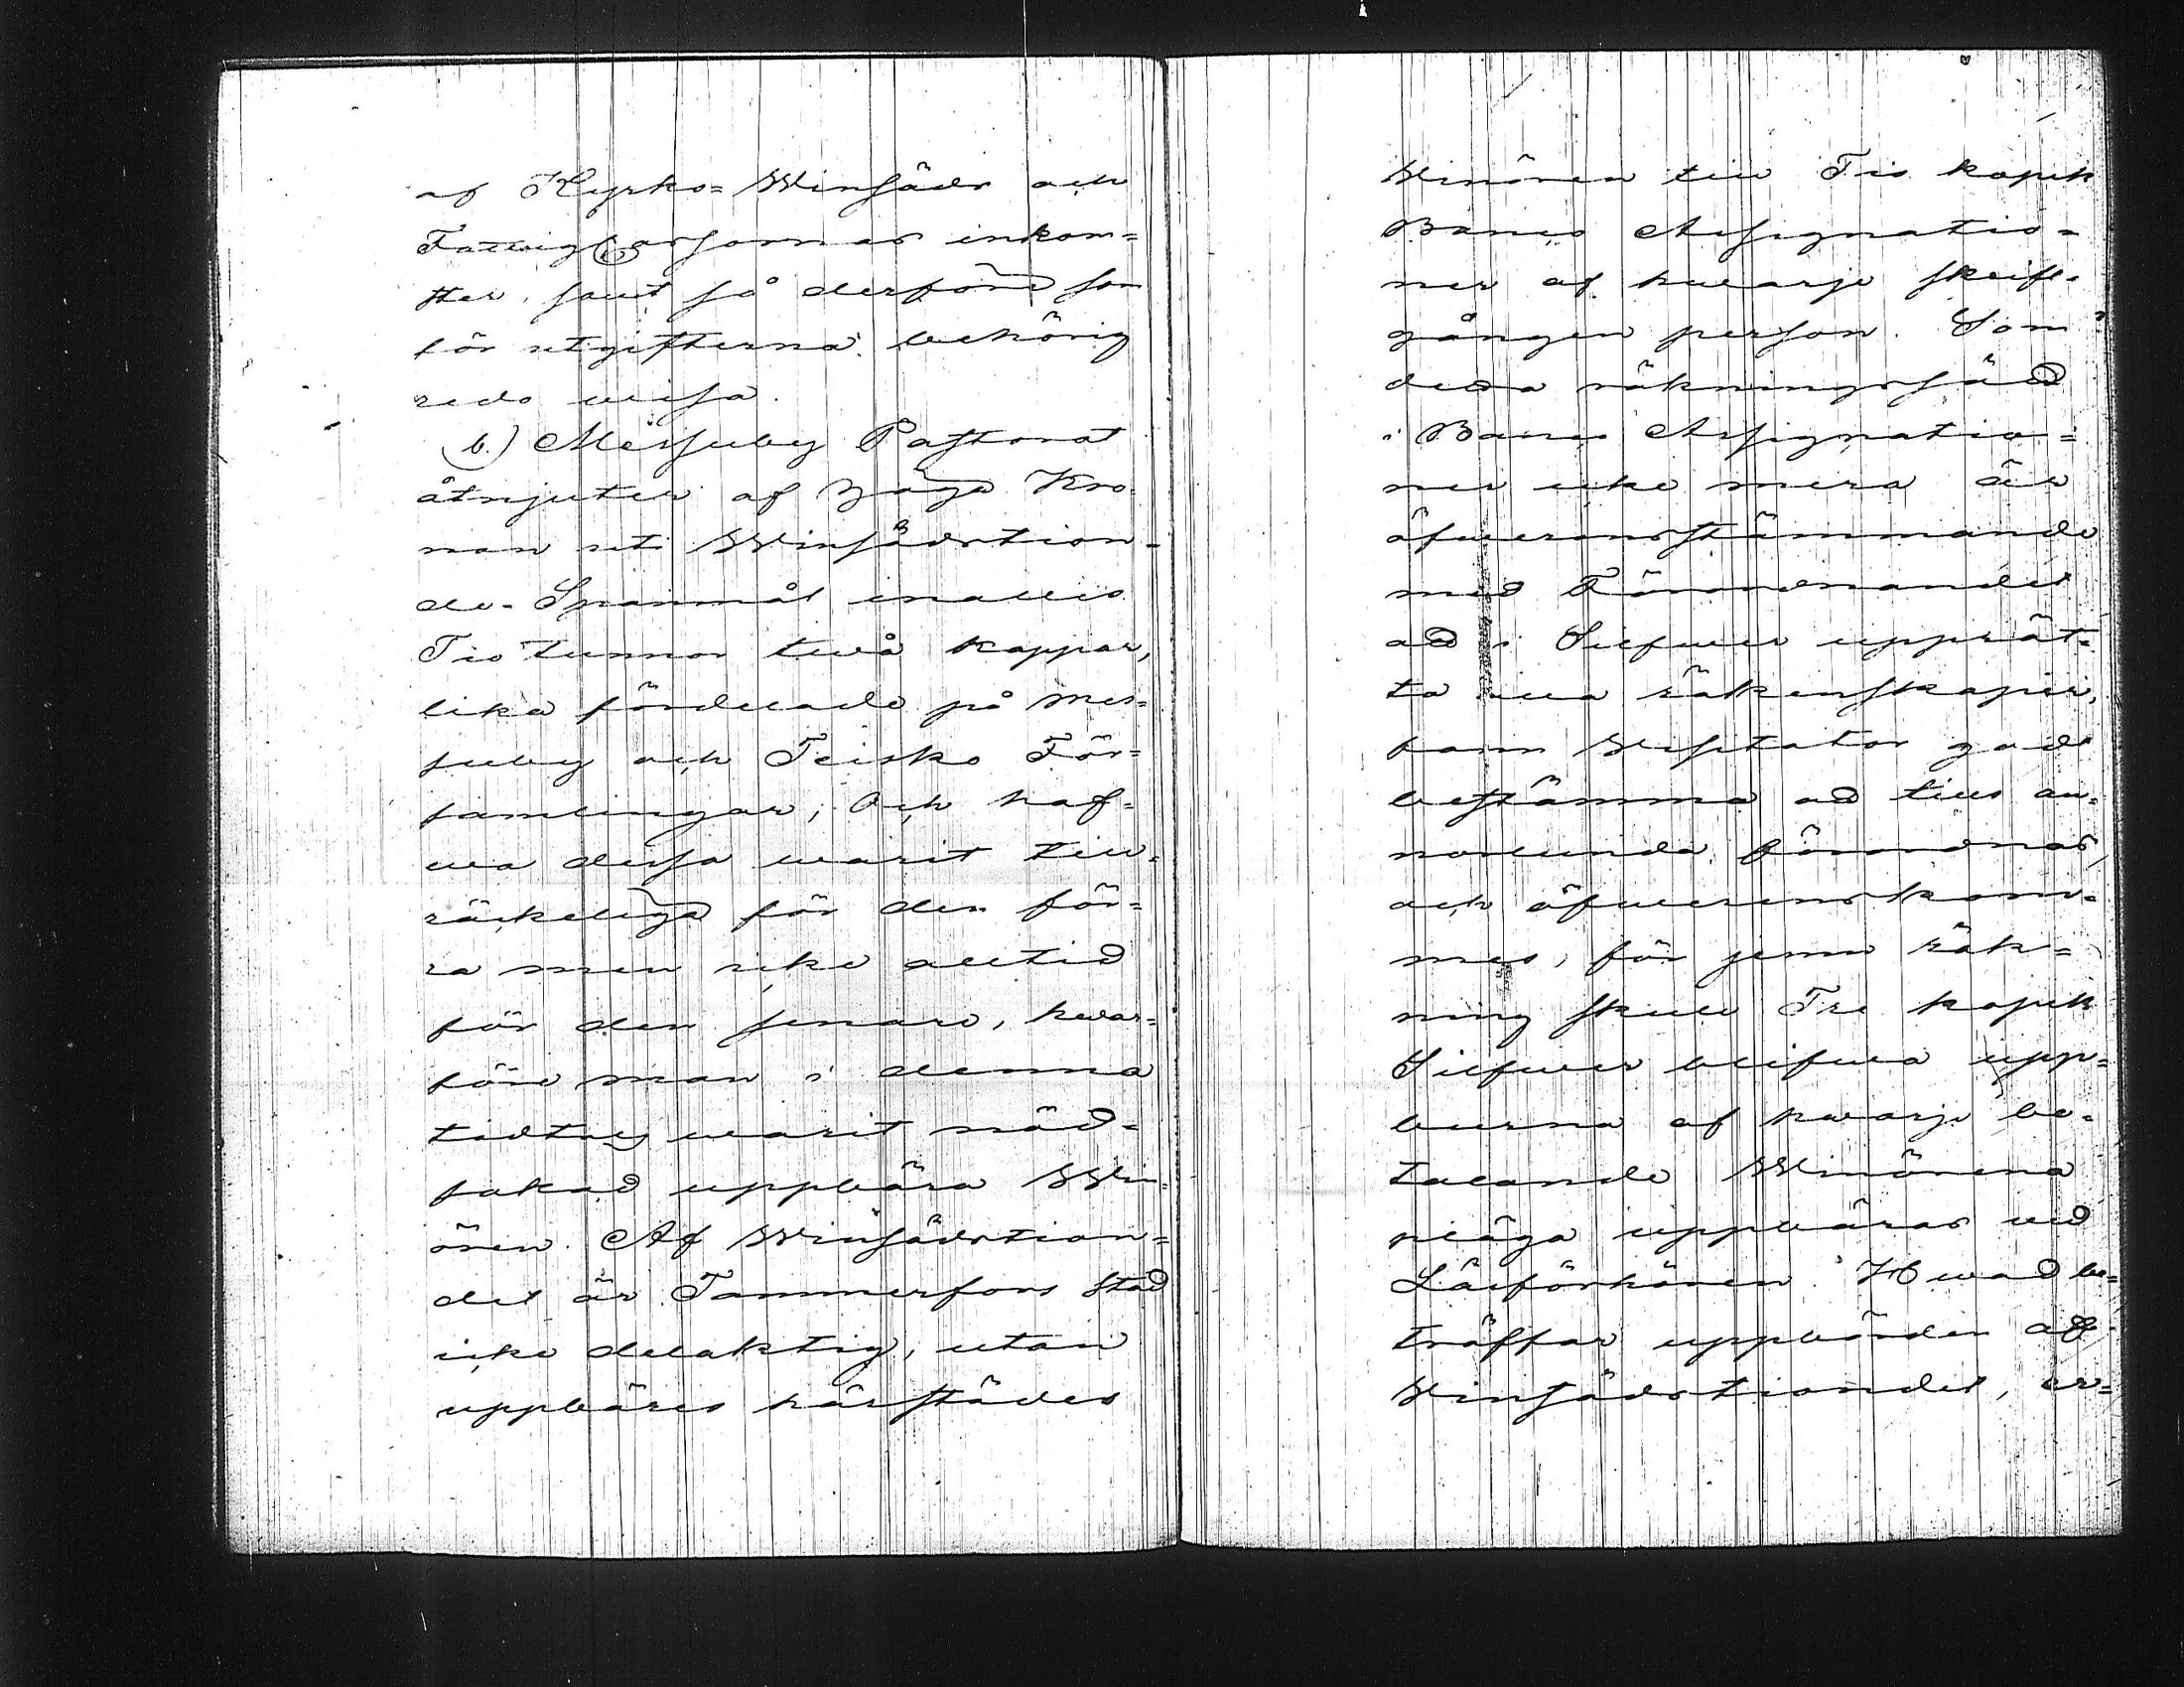 af Kyrko= Winsäds och
Fattig Casornas inkom=
ster, samt så derföre som
för utgifterna behörig
redo wisa.
b.) Messuby Pastorat
åtnjuter af Höga Kro
nan uti Winsädstion=
de- Spanmål inalles
Tio tunnor twå kappar,
lika fördelade på Mes=
suby och Teisko För=
samlingar; Och haf=
wa dessa warit till=
räckeliga för den för=
ra men icke alltid
för den senare, hwar=
före man i denna
tidtals warit nöd=
sakad uppbära Win=
ören. Af Winsädstion=
det är Tammerfors Stad
icke delaktig, utan
uppbäres härstädes
Winören till Tio kopek
Banco Assignatio=
ner af hwarje skrift=
gången person. Som
detta räkningssätt
i Banco Assignatio=
ner icke mera är
öfwerensstämmande
med Förordnandet
att i Silfwer upprät=
ta alla räkenskaper,
fann Visitator godt
bestämma att tills an=
norlunda förordnas,
och öfwerenskom=
mes, för jemn räk=
ning skull Tre kopek
Silfwer blifwa upp=
burna af hwarje be=
talande Winörena
pläga uppbäras wid
Läsförhören. Hwad be=
träffar uppbörden af
Winsädstiondet, er=